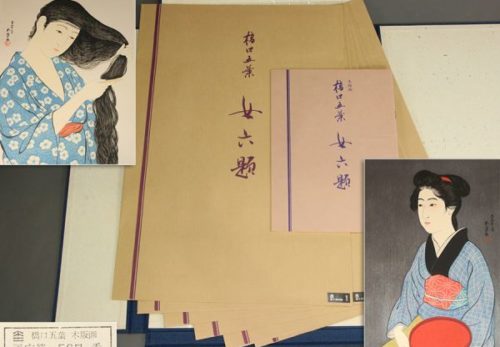 橋口五葉
女六題
木版画
橋口五葉
女六題
橋口五葉 木版画